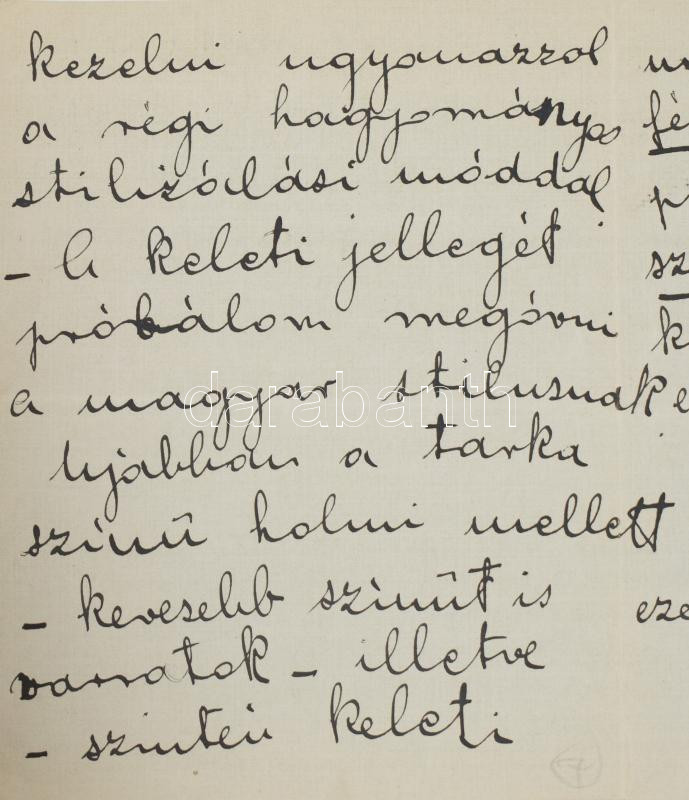 kezelni ugyanazzal
a régi hagyományos
stilizálási móddal
- A keleti jellegét
próbálom megóvni
a magyar stilusnak
Ujabban a tarka
szinű holmi mellett
- kevesebb szinűt is
varratok - illetve
- szintén keleti
darabanth